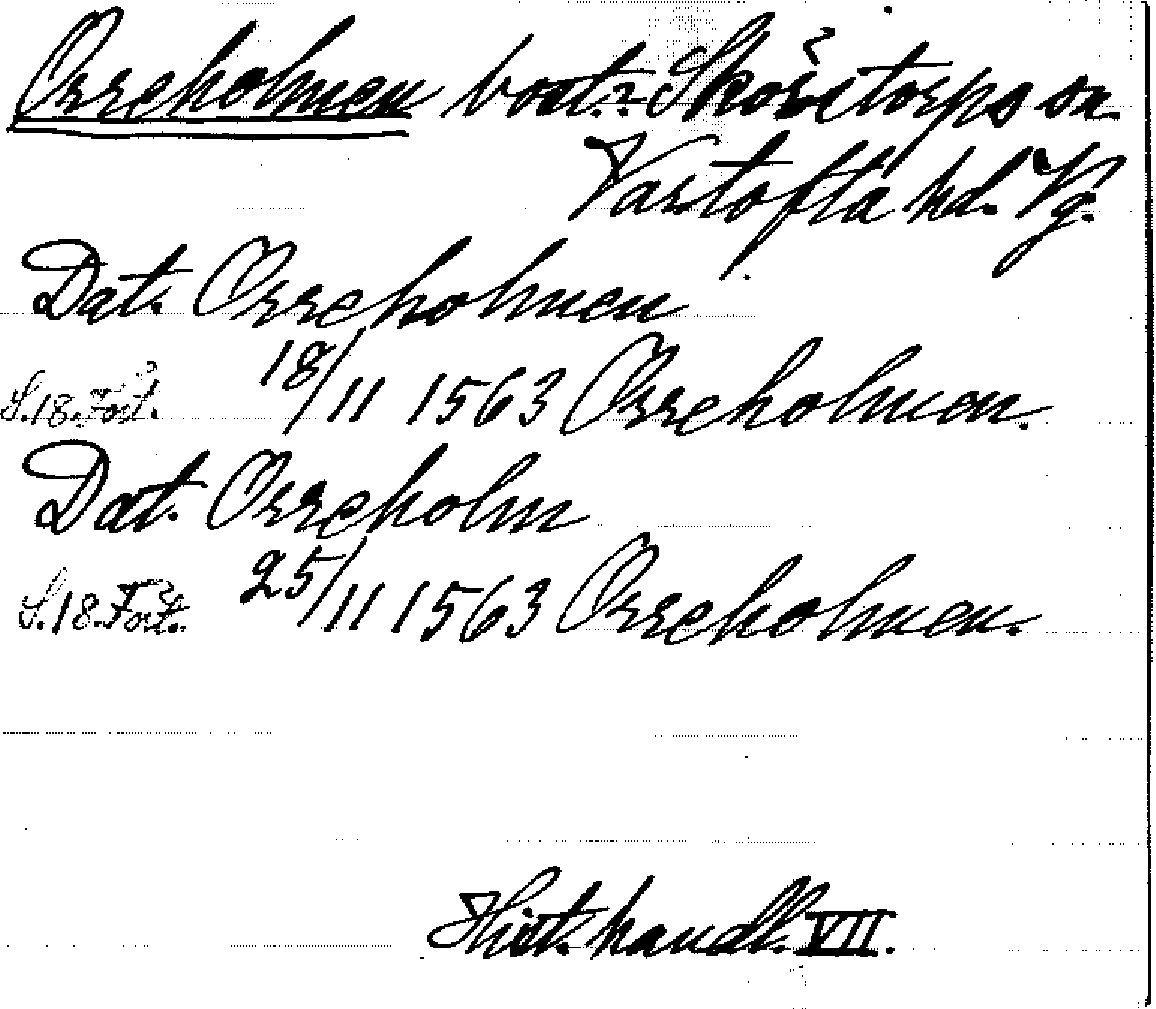 Orreholmen bost. Skörstorps sn
Vartofta hd. Vg.
Dat. Orreholmen
S. 18. Fört. 18/11 1563 Orreholmen.
Dat. Orreholm
S. 18. Fört. 25/11 1563 Orreholmen.
Hist. handl. VII.